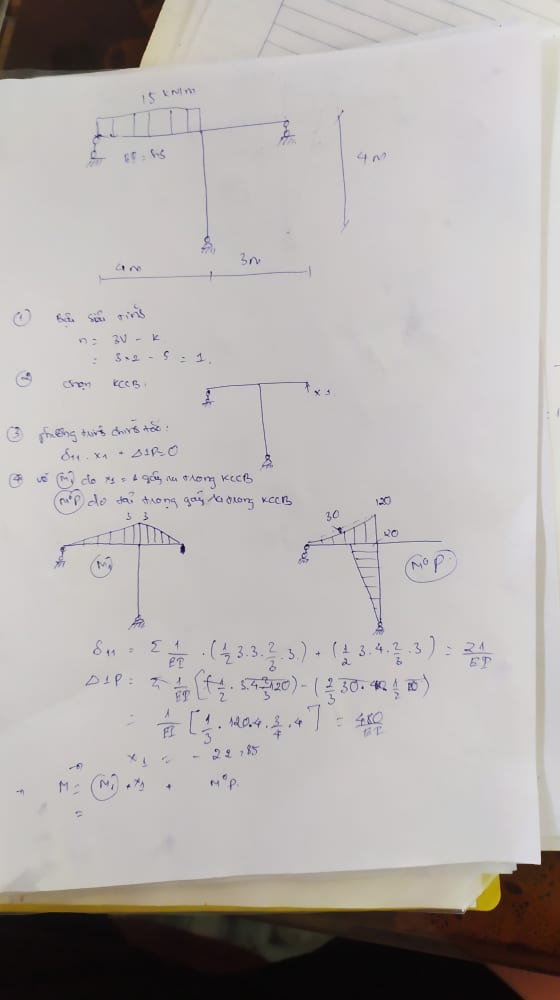 15 kN/m
4m
4m
3m
①
n = 3V - K
= 3×2 - 5 = 1.
② chọn KCCB.
x1
③ phương trình chính tắc:
δ11 . x1 + Δ1P = 0
④ vẽ M1 do x1 = 1 gây ra trong KCCB
M°P do tải trọng gây ra trong KCCB
3 3
M1
30
120
20
M°P
δ11 = Σ 1/EI . (1/2 3.3. 2/3 . 3) + (1/2 3.4. 2/3 . 3) = 21/EI
Δ1P = Σ 1/EI
= 1/EI [1/3 . 120.4. 3/4 . 4] = 480/EI
→ x1 = - 22,85
→ M = M1 . x1 + M°P.
=